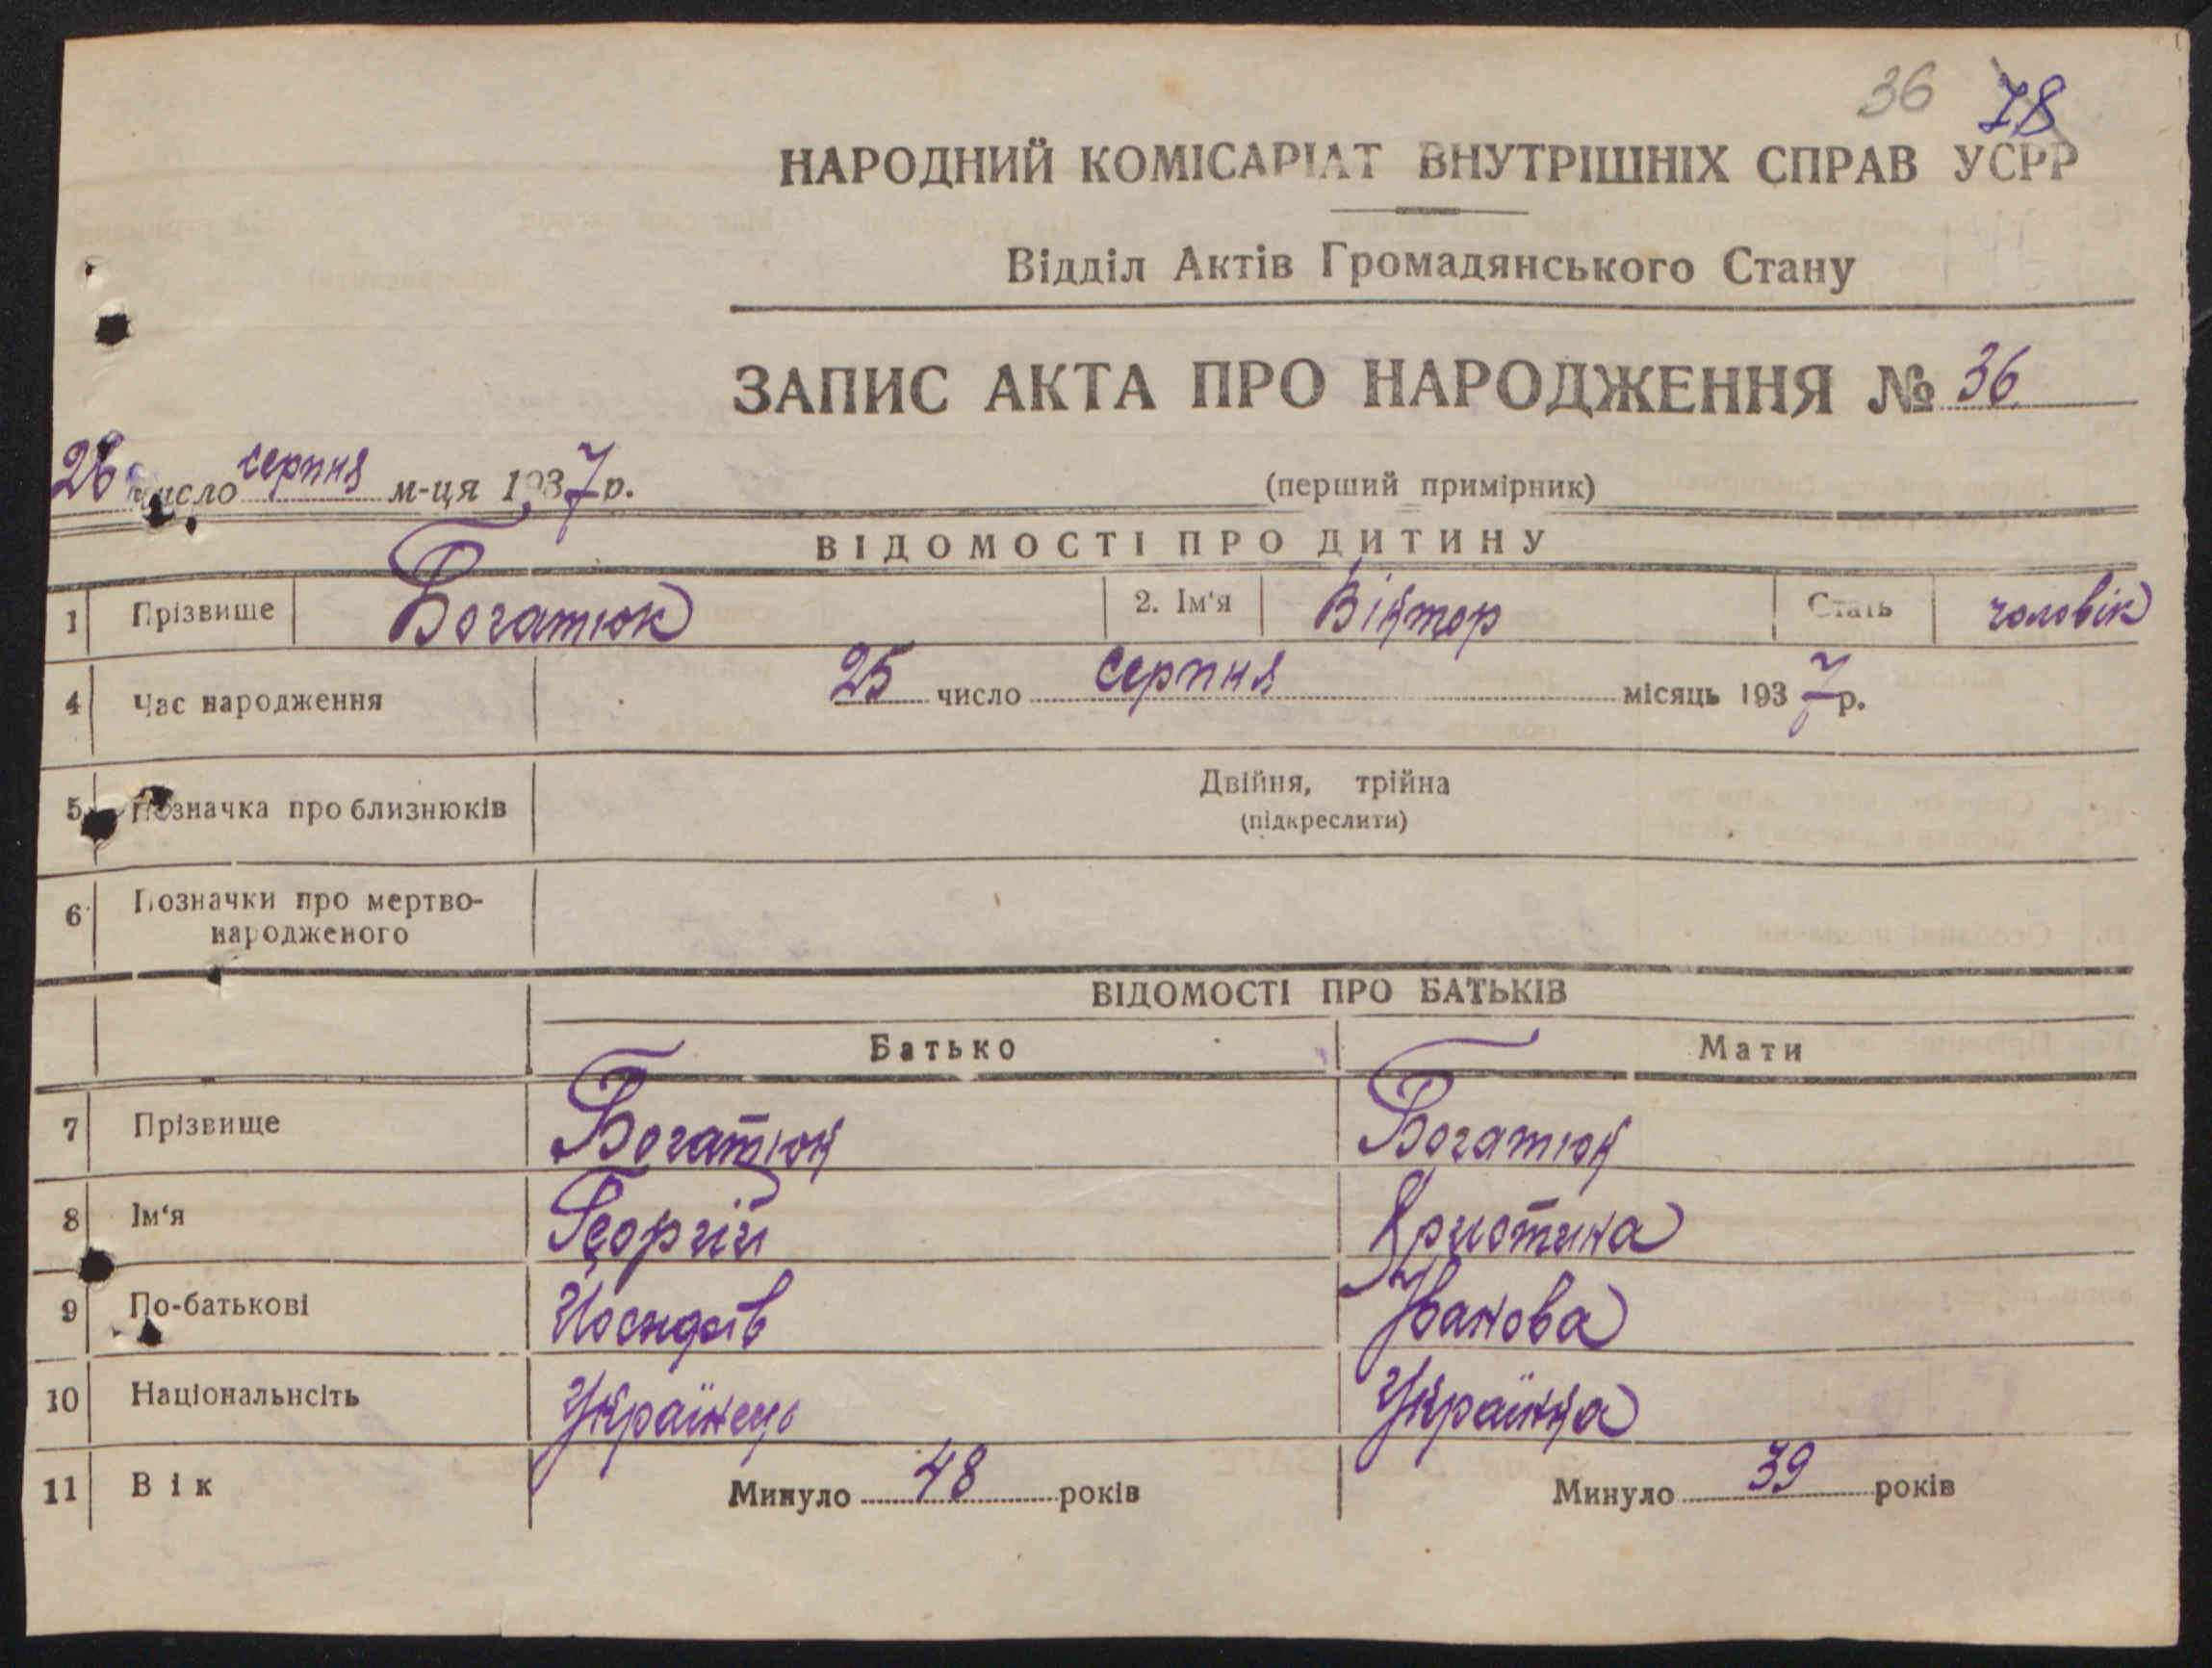 36 78
НАРОДНИЙ КОМІСАРІАТ ВНУТРІШНІХ СПРАВ УСРР
Відділ Актів Громадянського Стану
ЗАПИС АКТА ПРО НАРОДЖЕННЯ № 36
26 число серпня м-ця 1937 р.
(перший примірник)
ВІДОМОСТІ ПРО ДИТИНУ
1 Прізвище Богатюк 2. Ім'я Віктор Стать чоловік
4 Час народження 25 число серпня місяць 1937 р.
5 Позначка про близнюків Двійня, трійна
(підкреслити)
6 Позначки про мертво-
народженого
ВІДОМОСТІ ПРО БАТЬКІВ
Батько Мати
7 Прізвище Богатюк Богатюк
8 Ім'я Георгій Христина
9 По-батькові Іванова
10 Національнсіть Українець Українка
11 Вік Минуло 48 років Минуло 39 років